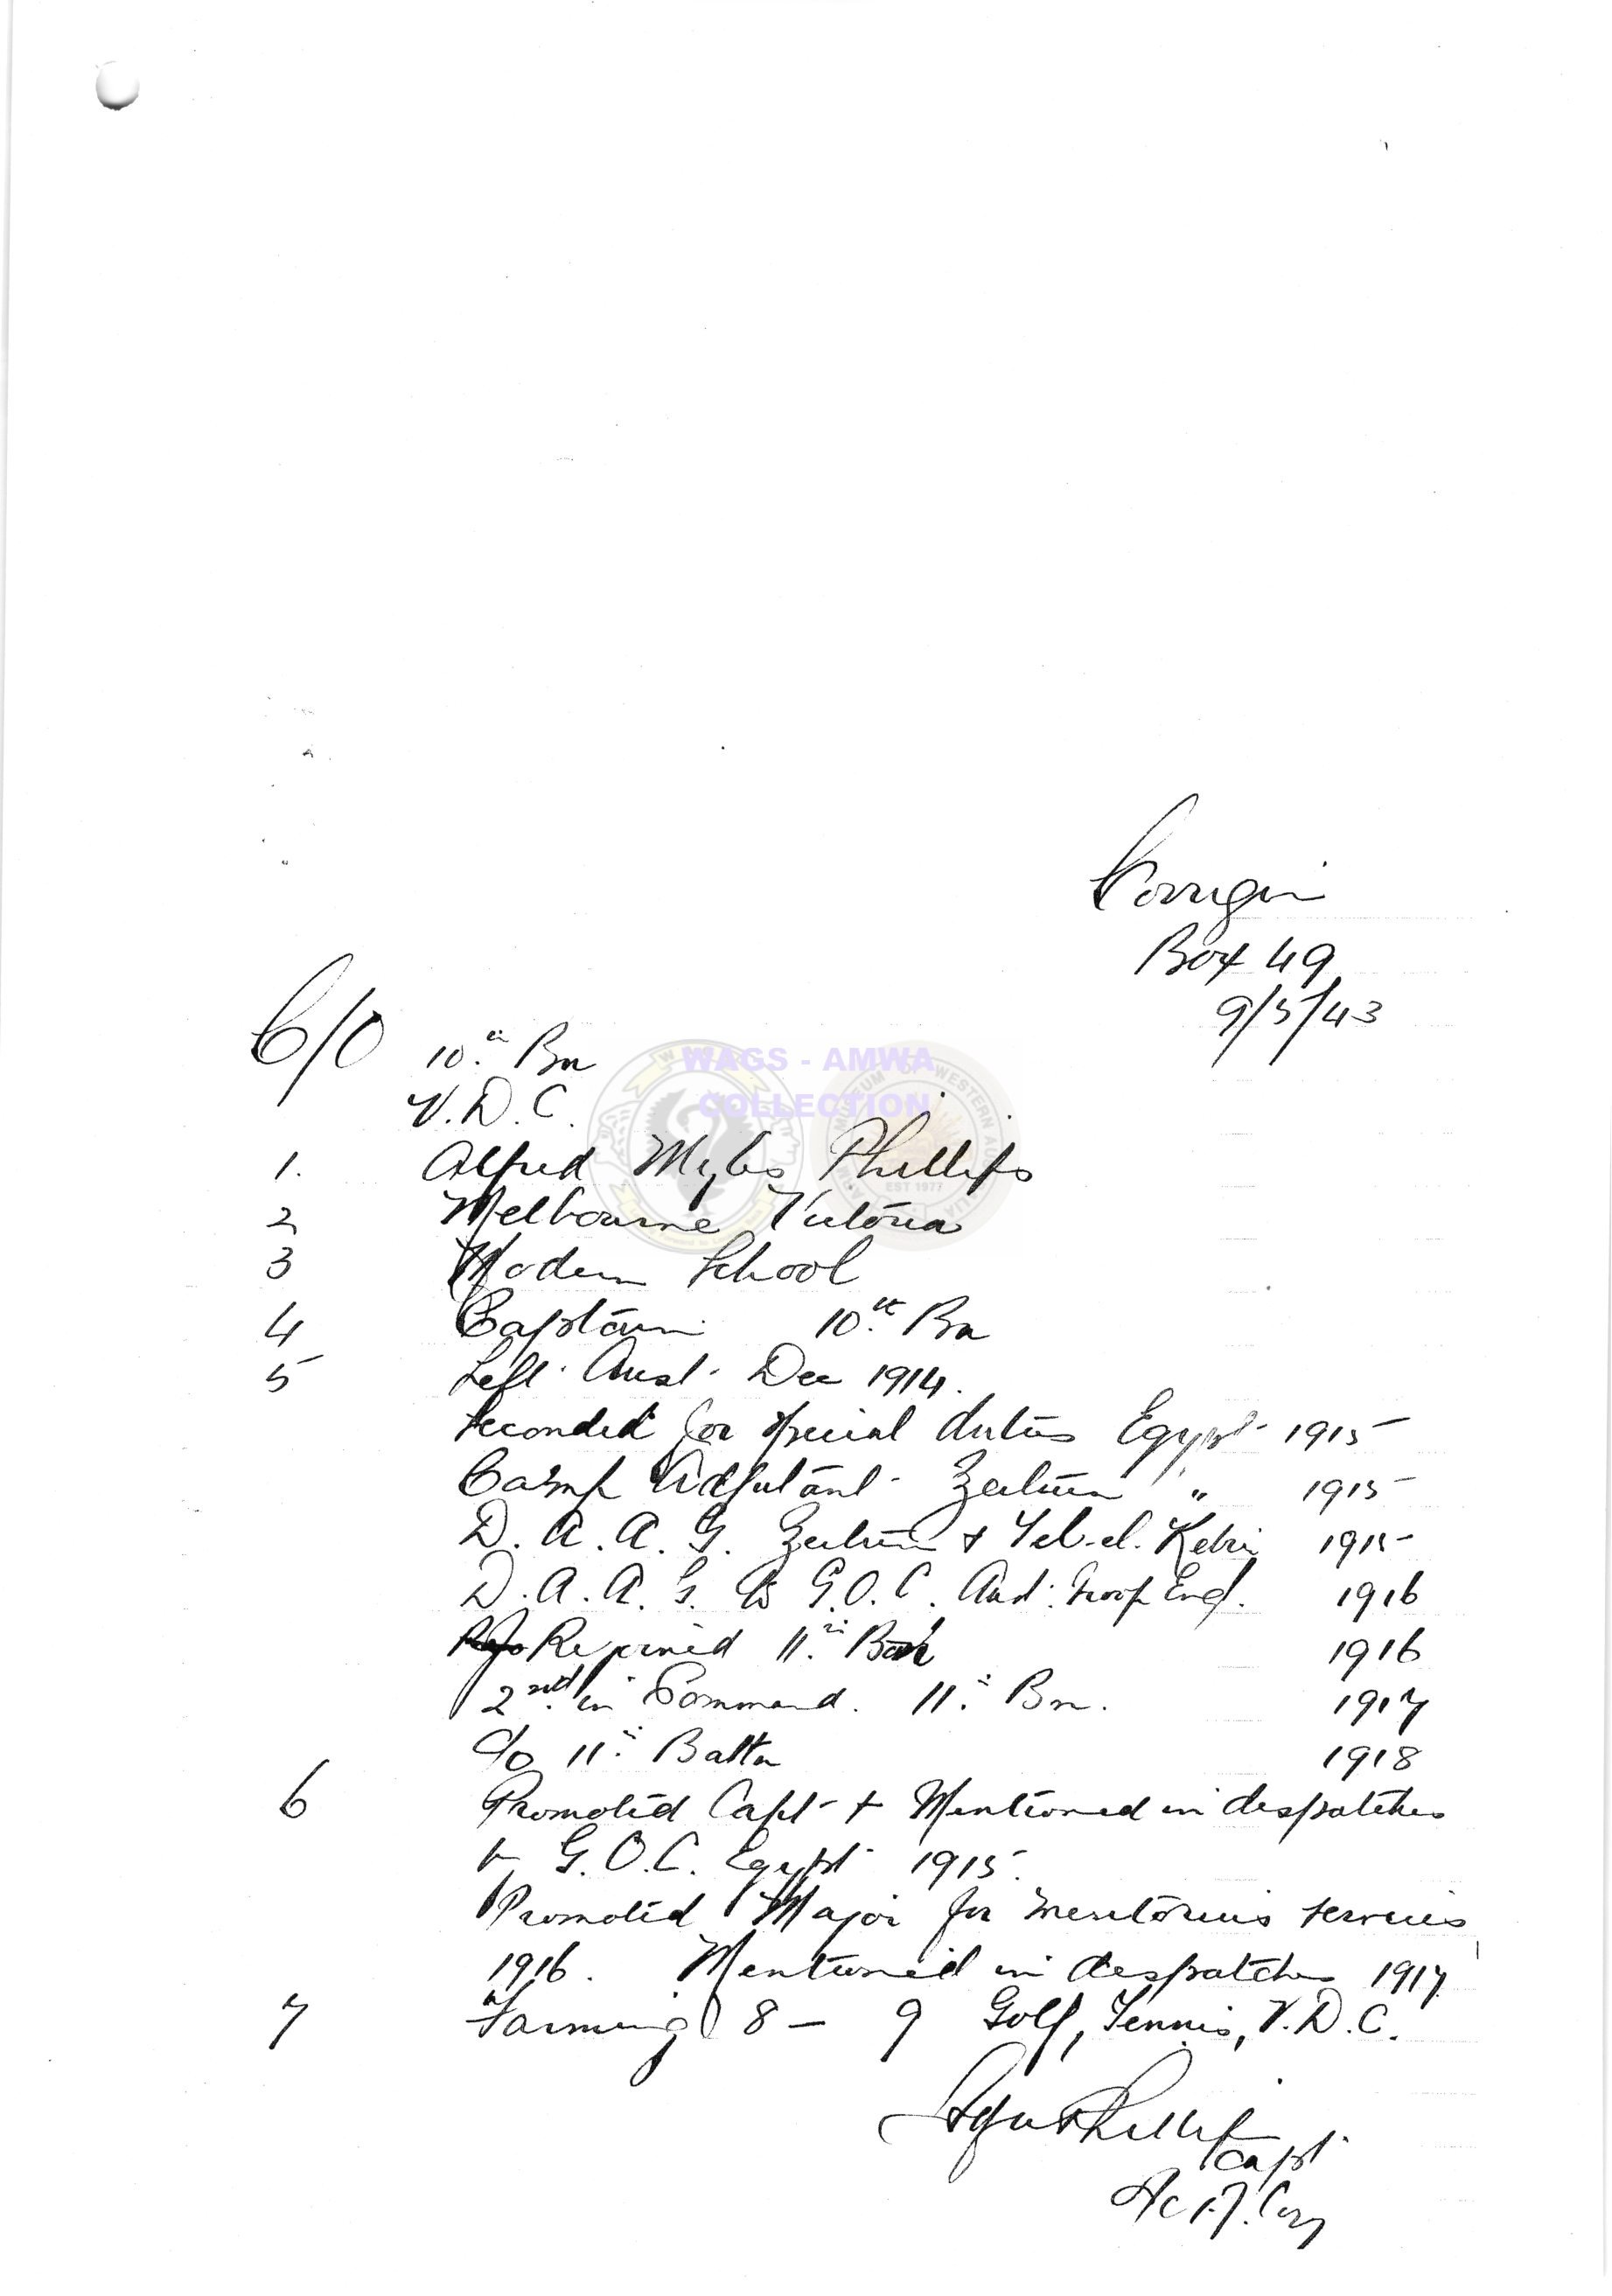 Corrigin
Box 49
9/5/43
C/O 10th Bn
V.D.C.
WAGS - AMWA
COLLECTION
EST 1977
1. Alfred Myles Phillips
2 Melbourne Victoria
3 Modern School
4 Captain 10th Bn
5 Left Aust. Dec 1914.
Seconded for special duties Egypt 1915
Camp Adjutant Zeitun " 1915
D.A.A.G. Zeitun + Tel-el-Kebir 1915
D.A.A.G. to G.O.C. Aust. Troop Eng. 1916
Rejoined 11th Batt 1916
2nd in Command. 11th Bn. 1917
C/o 11th Battn 1918
6 Promoted Capt + Mentioned in despatches
by G.O.C. Egypt 1915
Promoted Major for meritorius services
1916. Mentioned in despatches 1917
7 Farming 8 - 9 Golf, Tennis, V.D.C.
Phillips
Capt
Coy